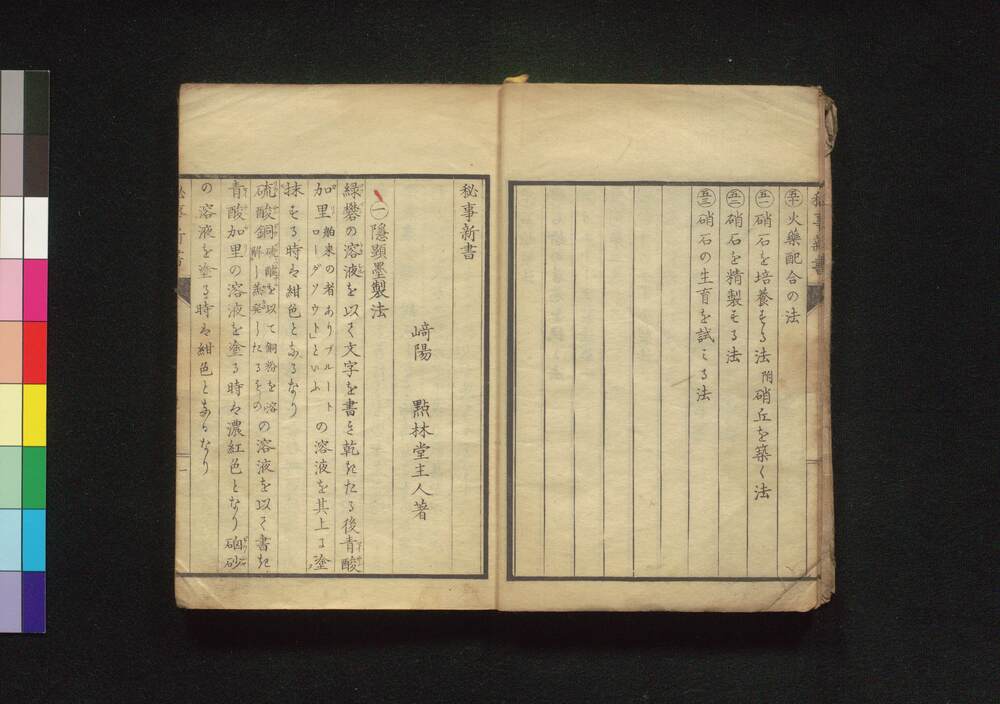 ㊿火藥配合の法
五一硝石を培養する法 附硝丘を築く法
五二硝石を精製する法
五三硝石の生育を試こる法
秘事新書
秘事新書
﨑陽 點林堂主人著
一 隱顯墨製法
綠礬の溶液を以て文字を書き乾きたる後青酸
加里舶来の者ありブルートローグソウト」といふの溶液を其上に塗
抹する時は紺色となるなり
硫酸銅硫酸を以て銅粉を溶解し蒸発したるものの溶液を以て書き
青酸加里の溶液を塗る時は濃紅色となり硇砂
の溶液を塗る時は紺色となるなり
秘事新書
一